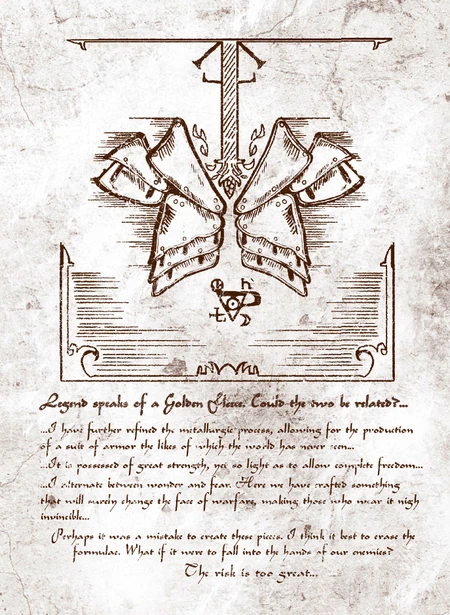 Legend speaks of a Golden Fleece. Could the two be related?...
...I have further refined the metallurgic process, allowing for the production
of a suit of armor the likes of which the world has never seen...
...It is possessed of great strength, yet so light as to allow complete freedom...
...I alternate between wonder and fear. Here we have crafted something
that will surely change the face of warfare, making those who wear it nigh
invincible...
Perhaps it was a mistake to create these pieces. I think it best to erase the
formulae. What if it were to fall into the hands of our enemies?
The risk is too great...